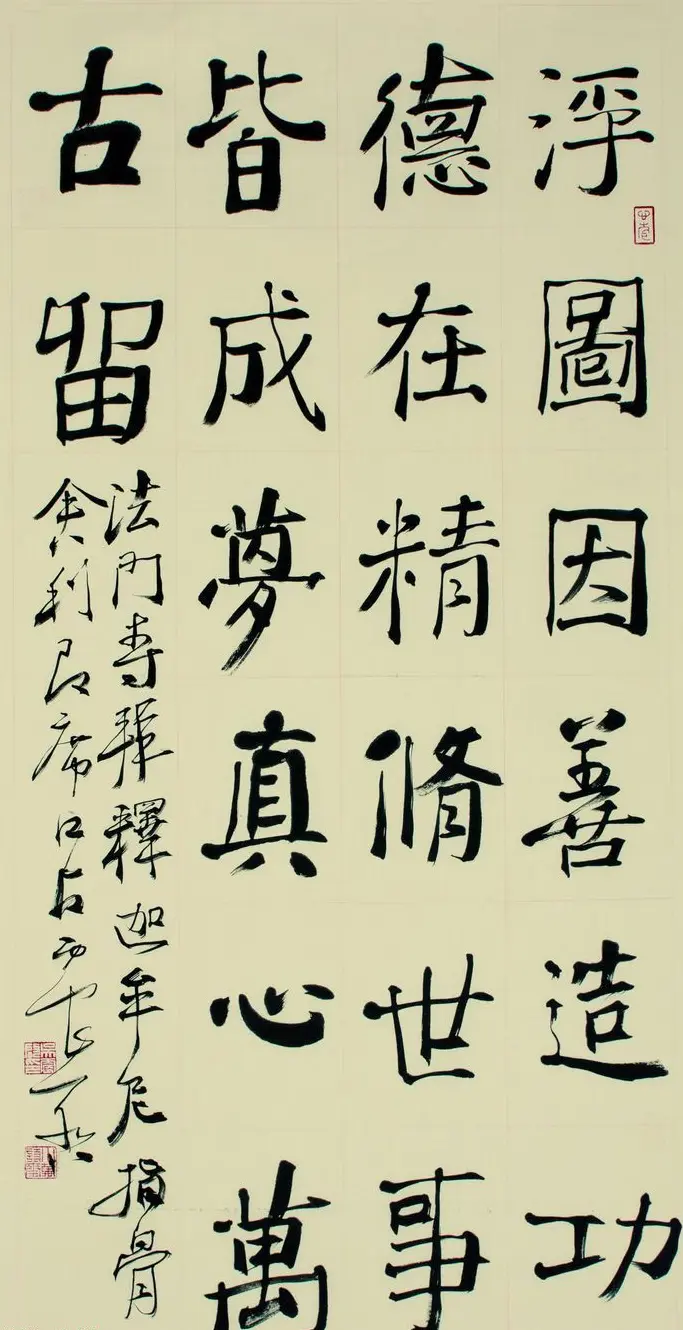 浮圖因善造功
德在精脩世事
皆成夢真心萬
古留
法門寺拜釋迦牟尼指骨
舍利即席口占